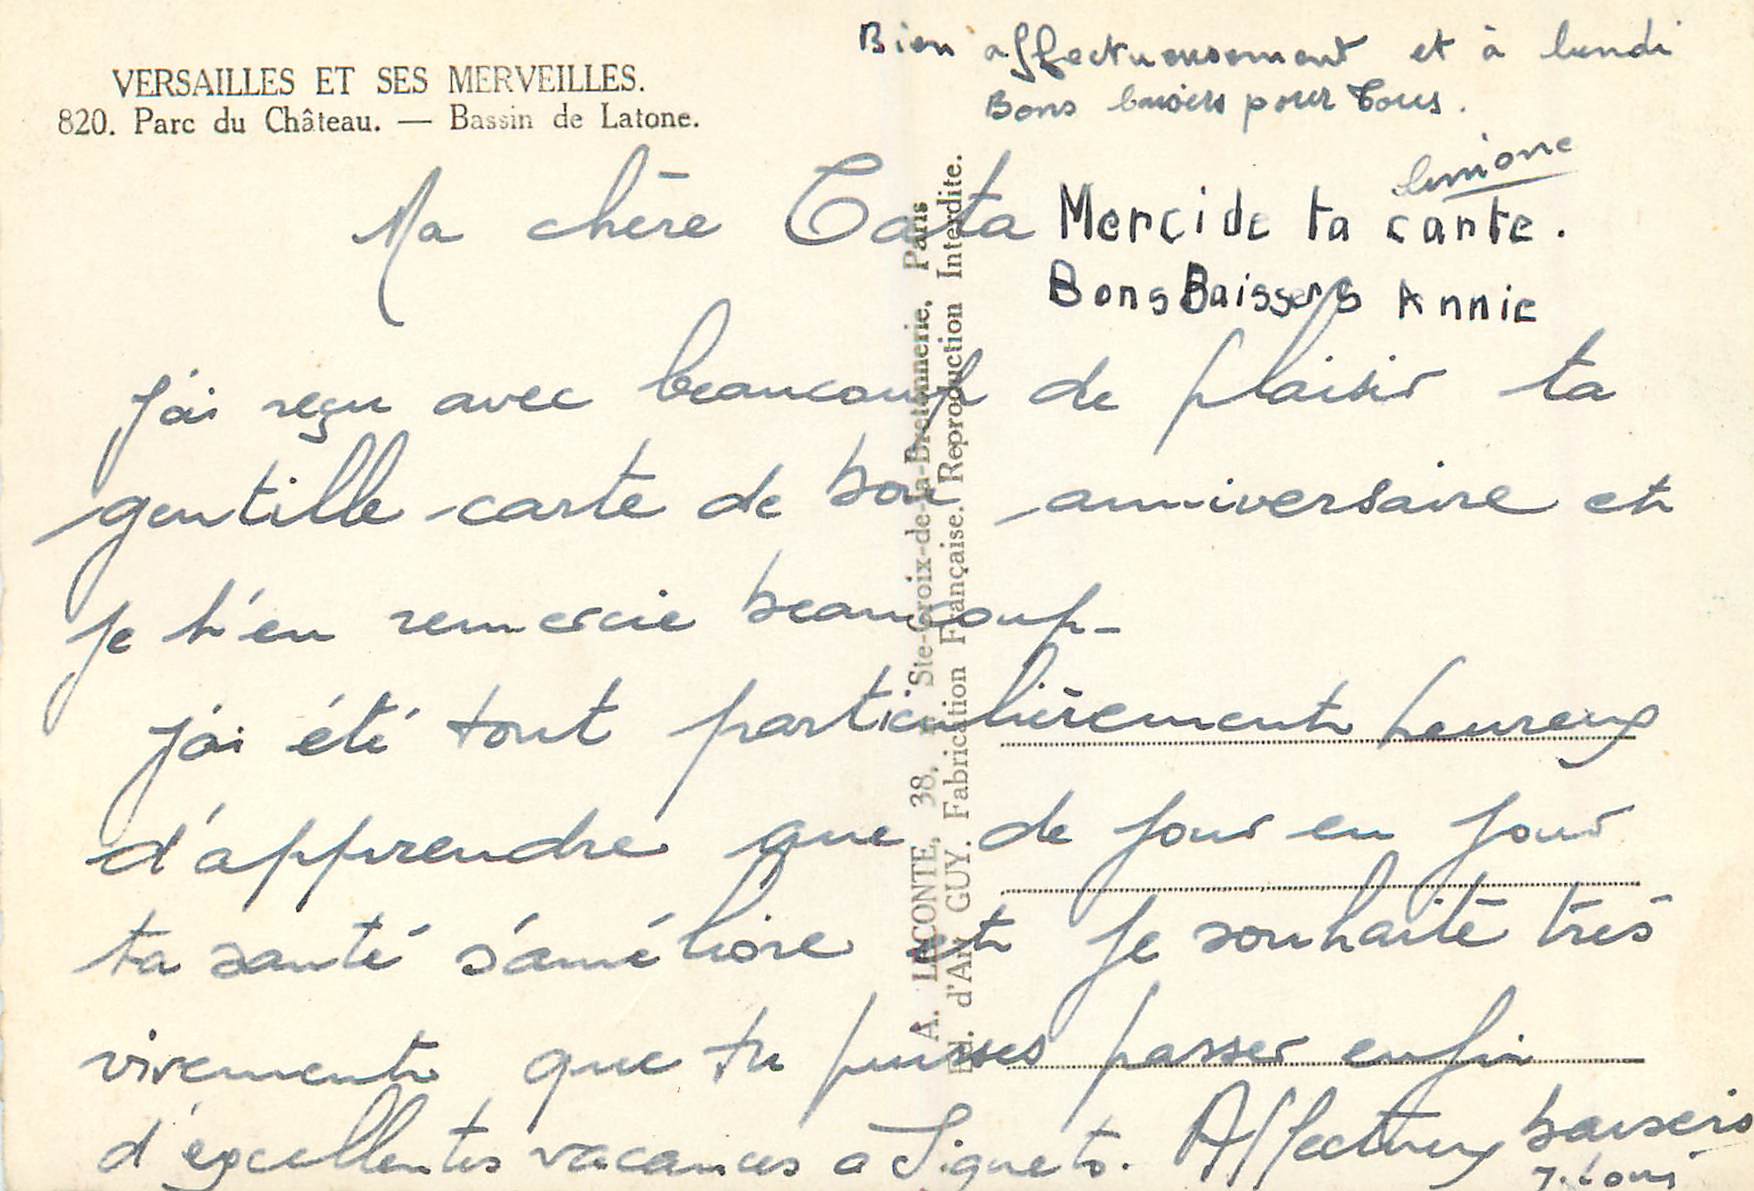 Bien affectueusement et à lundi
Bons baisers pour tous.
VERSAILLES ET SES MERVEILLES.
820. Parc du Château. — Bassin de Latone.
Ma chère Tata
Merci de ta carte.
Bons Baissers Annie
j'ai reçu avec beaucoup de plaisir ta
gentille carte de bon anniversaire et
je t'en remercie beaucoup -
J'ai été tout particulièrement heureux
d'apprendre que de jour en jour
ta santé s'améliore et je souhaite très
vivement que tu puisses passer enfin
d'excellentes vacances a Signets. Affectueux baisers
J. Louis
A. LECONTE, 38, r. Ste-Croix-de-la-Bretonnerie, Paris
Ed. d'Art GUY. Fabrication Française. Reproduction Interdite.